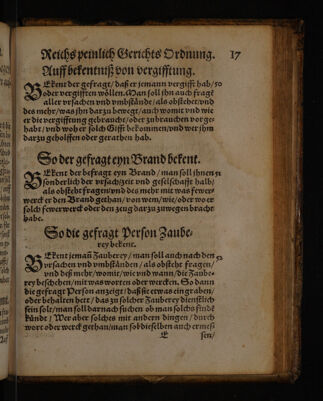 Reichs peinlich Gerichts Ordnung. 17
Auff bekentniß von vergifftung.
BEkent der gefragt/ daß er jemann vergifft hab/ 50
oder vergifften wöllen. Man soll jhn auch fragt
aller vrsachen vnd vmbstände/ als obstehet/ vnd
des mehr/ was jhn darzu bewegt/ auch womit vnd wie
er die vergifftung gebraucht/ oder zubrauchen vorge-
habt/ vnd woher solch Gifft bekommen/ vnd wer jhm
darzu geholffen oder gerathen hab.
So der gefragt eyn Brand bekent.
BEkent der befragt eyn Brand/ man soll jhnen 51
sonderlich der vrsach/ zeit vnd gesellschafft halb/
als obsteht fragen/ vnd des mehr mit was fewer
werck er den Brand gethan/ von wem/ wie/ oder wo er
solch fewerwerck oder den zeug darzu zuwegen bracht
habe.
So die gefragt Person Zaube-
rey bekent.
BEkent jemañ Zauberey/ man soll auch nach den 52
vrsachen vnd vmbständen/ als obsteht fragen/
vnd deß mehr/ womit/ wie vnd wann/ die Zaube-
rey beschehen/ mit was worten oder wercken. So dann
die gefragt Person anzeigt/ daß sie etwas eingraben/
oder behalten hett/ das zu solcher Zauberey dienstlich
sein solt/ man soll darnach suchen ob man solchs finde
kündt/ Wer aber solches mit andern dingen/ durch
wort oder werck gethan/ man sol dieselben auch ermes-
E sen/